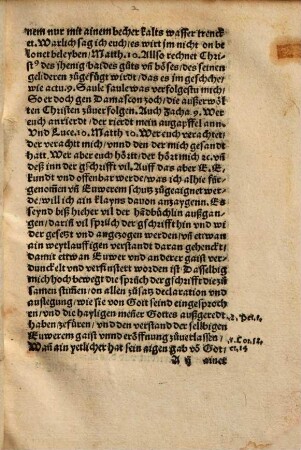 nem nur mit ainem becher kalts wasser trenck
et. Warlich sag ich euch/ es wirt im nicht on be
lonet beleyben/ Matth. 10. Allso rechnet Chri-
stꝰ des jhenig ba[l]des gůts vñ bőses/ des seinen
gelideren zůgefůgt wirdt/ das es im geschehe/
wie actu. 9. Saule saule was verfolgestu mich/
So er doch gen Damascon zoch/ die ausserwől
ten Christen zůuerfolgen. Auch Zacha 9. Wer
euch anrierdt/ der rierdt mein augapffel ann.
Vnd Luce. 10. Matth 10. Wer euch verachtet/
der verachtt mich/ vnnd den der mich gesandt
hat. Wer aber euch hőrtt/ der hőrt mich ꝛc. vñ
deß inn der gschrifft vil. Auff das aber E. E.
kundt vnd offenbar werde/ was ich alhie fůr-
genomen vñ Euwerem schutz zůgeaignet wer-
de/ will ich ain klayns dauon anzaygenn. Es
seynd biß hieher vil der hädbůchlin außgan-
gen/ darin vil sprůch der gschrifft hin vnd wi
der gesetzt vnd angezogen werden/ vñ etwan
ain weytlauffigen verstandt daran gehenckt/
damit etwan Euwer vnd anderer gaist ver-
dunckelt vnd verfinstert worden ist Dasselbig
mich hoch bewegt die sprůch der gschrifft zů-
samen stimen/ on allen zůsatz declaration vnd
außlegung/ wie sie von Got seind eingesproch
en/ vnd die hayligen mener Gottes außgeredt
haben zefůren/ vnd den verstand der sellbigen
Euwerem gaist vnnd erőffnung zůuerlassen/
Wañ ain yetlicher hat sein aigen gab vő Got/
2. Pet. 1.
1. Cor. 12.
et. 14
A ij ainer